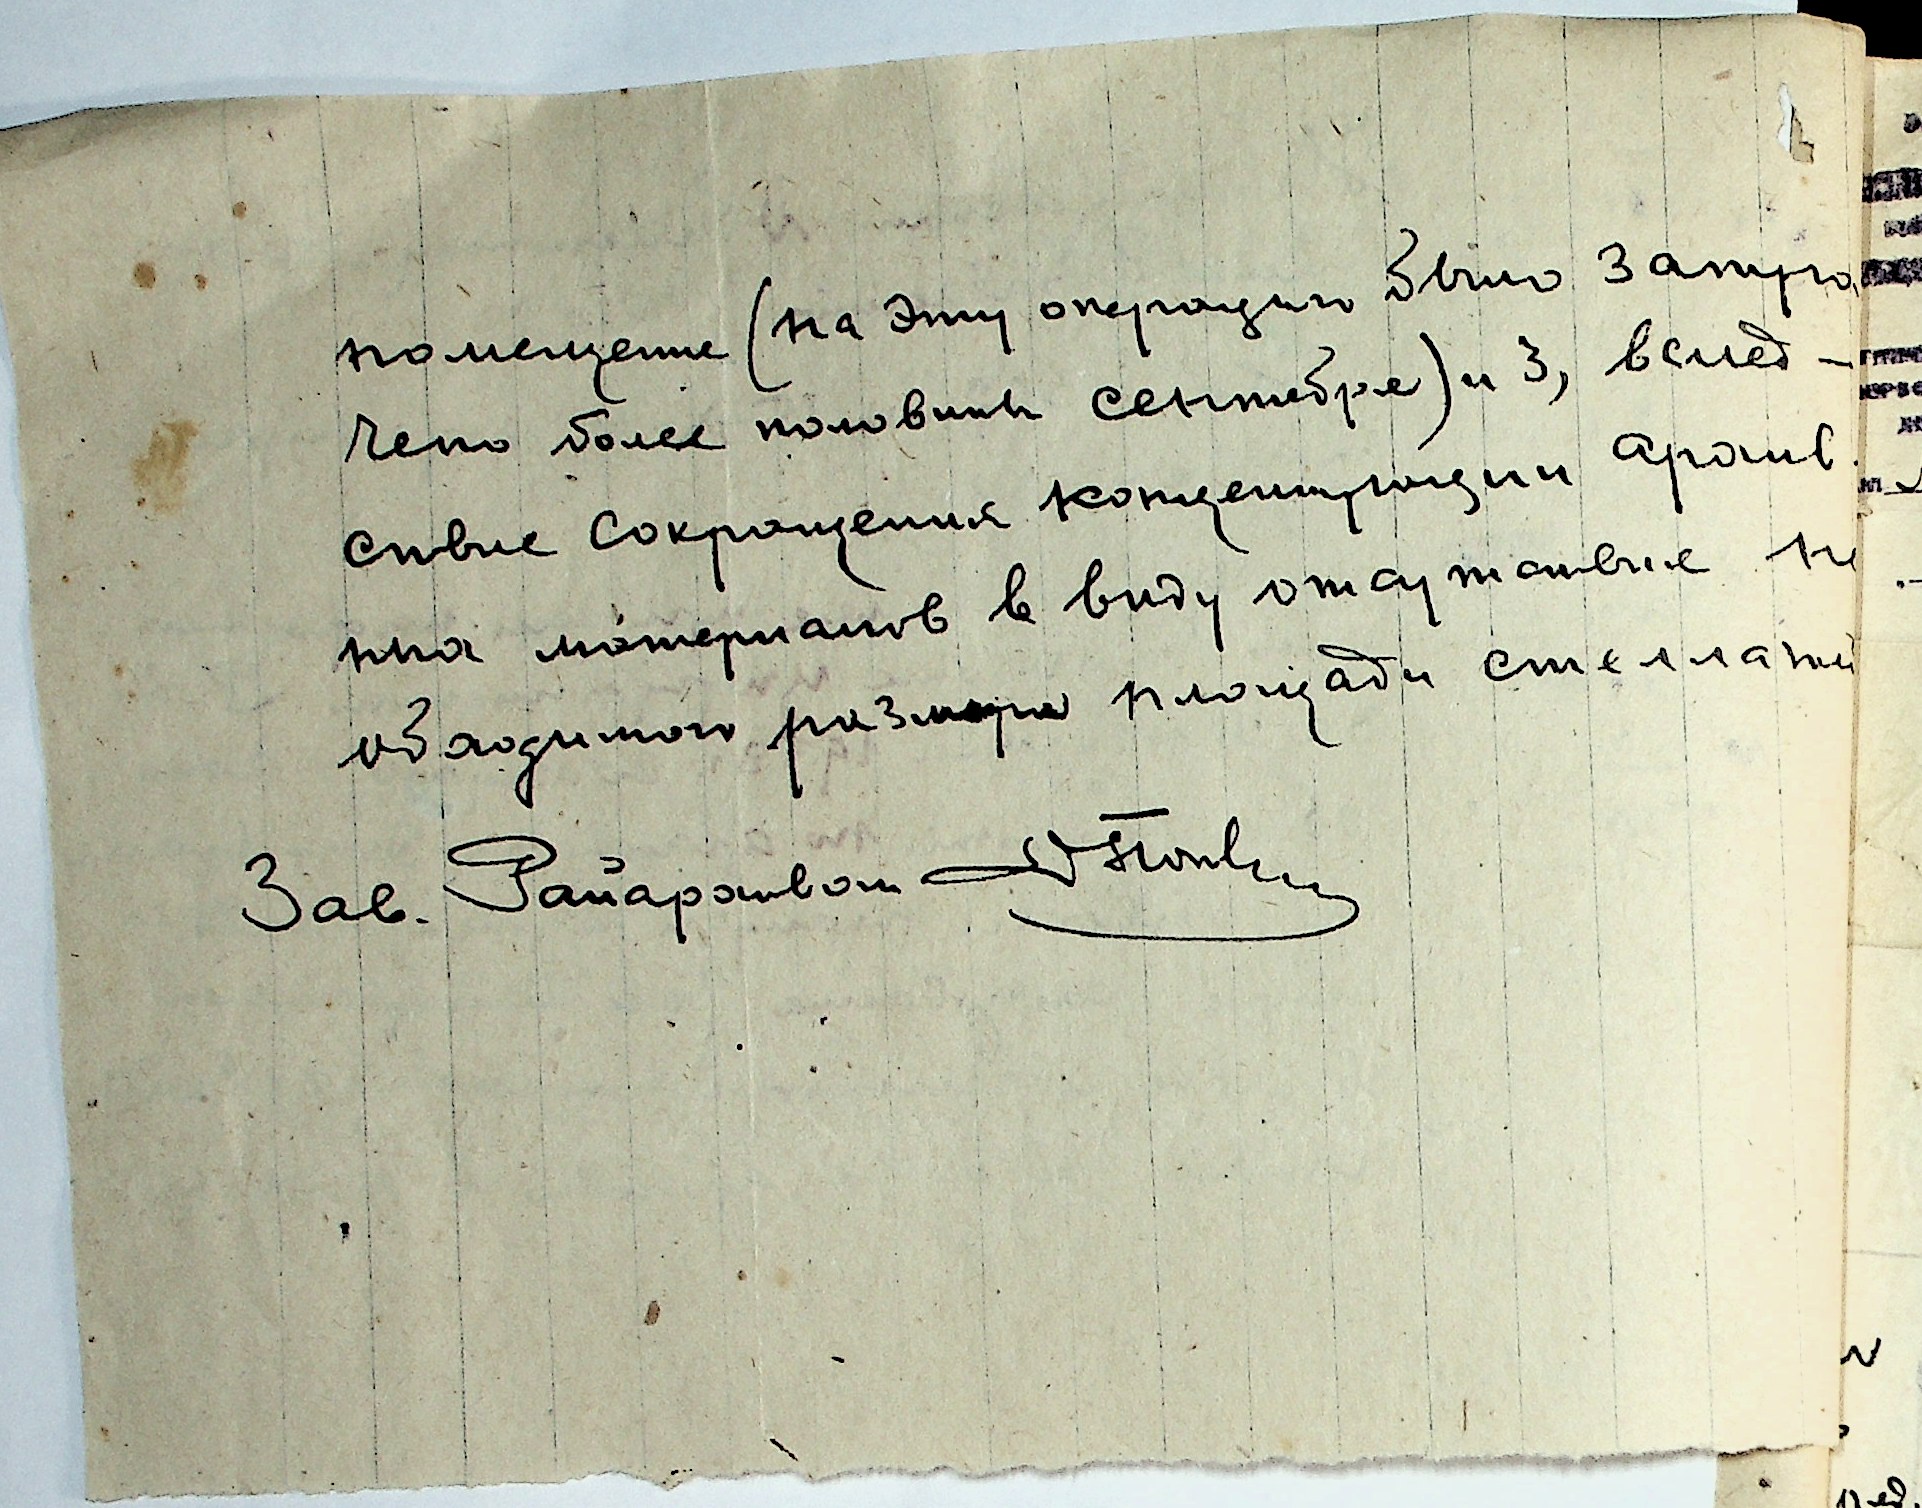 помещение (на эту операцию было затра
чено более половины сентября) и 3, вслед-
ствие сокращения концентрации архив.
ных материалов в виду отсутствия не
обходимого размера площади стеллажей
Зав. Райархивом